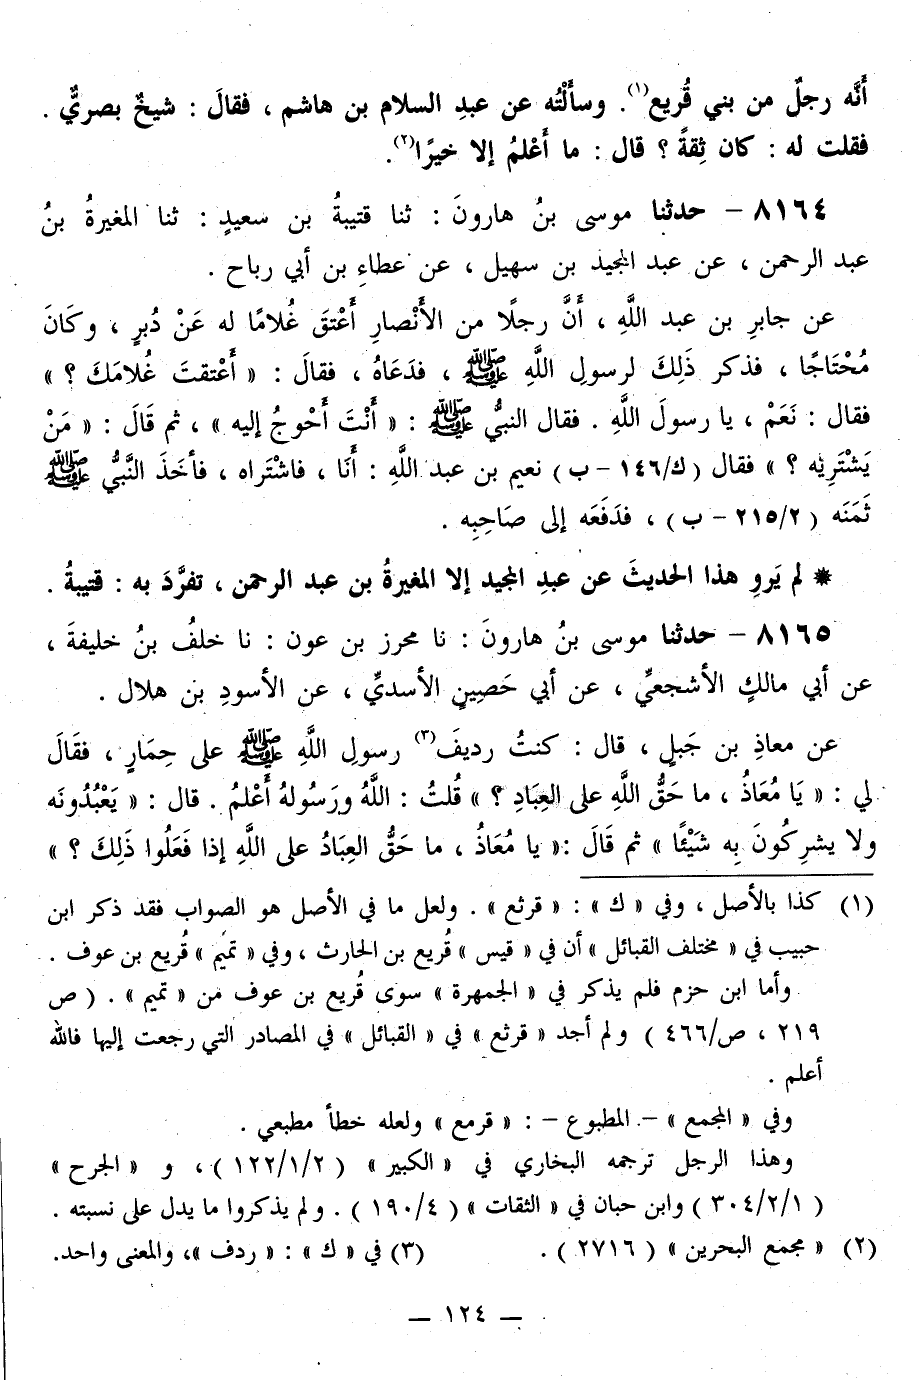 أَنَّه رجلٌ من بني قُريع(١). وسأَلْتُه عن عبدِ السلام بن هاشم ، فقالَ : شيخٌ بصريٌّ .
فقلت له : كان ثِقةً ؟ قال : ما أَعْلمُ إلا خيرًا(٢).
٨١٦٤ – حدثنا موسى بنُ هارونَ : ثنا قتيبةُ بن سعيدٍ : ثنا المغيرةُ بنُ
عبد الرحمن ، عن عبد المجيد بن سهيل ، عن عطاءِ بن أبي رباح .
عن جابرِ بن عبد اللَّهِ ، أَنَّ رجلًا من الأَنْصارِ أَعْتقَ غُلامًا له عَنْ دُبرٍ ، وكَانَ
مُحْتَاجًا ، فذكر ذَلِكَ لرسولِ اللَّهِ ﷺ ، فدَعَاهُ ، فقالَ : « أَعْتقتَ غُلامَكَ ؟ »
فقال : نَعَمْ ، يا رسولَ اللَّهِ . فقال النبيُّ ﷺ : « أَنْتَ أَحْوجُ إليه » ، ثم قَالَ : « مَنْ
يَشْتَرِيْه ؟ » فقال ( ك/١٤٦ – ب ) نعيم بن عبد اللَّهِ : أَنَا ، فاشْتَراه ، فأخَذَ النَّبيُّ ﷺ
ثَمَنَه ( ٢١٥/٢ – ب ) ، فدَفَعَه إلى صَاحِبِه .
* لم يَروِ هذا الحديثَ عن عبدِ المجيد إلا المغيرةُ بن عبد الرحمن ، تفرَّدَ به : قتيبةُ .
٨١٦٥ – حدثنا موسى بنُ هارونَ : نا محرز بن عون : نا خلفُ بنُ خليفةَ ،
عن أبي مالكٍ الأشجعيِّ ، عن أبي حَصِينٍ الأسديِّ ، عن الأسودِ بن هلال .
عن معاذِ بن جَبلٍ ، قال : كنتُ رديفَ(٣) رسولِ اللَّهِ ﷺ على حِمَارٍ ، فقَالَ
لي : « يَا مُعَاذُ ، ما حَقُّ اللَّهِ على العِبَادِ ؟ » قُلتُ : اللَّهُ ورَسُولهُ أَعْلمُ . قال : « يَعْبُدُونَه
ولا يشرِكُونَ بِه شَيْئًا » ثم قَالَ :« يا مُعَاذُ ، ما حَقُّ العِبَادُ على اللَّهِ إذا فَعَلُوا ذَلِكَ ؟ »
(١) كذا بالأصل ، وفي « ك » : « قرثع » . ولعل ما في الأصل هو الصواب فقد ذكر ابن
حبيب في « مختلف القبائل » أن في « قيس » قُريع بن الحارث ، وفي « تميم » قُريع بن عوف .
وأما ابن حزم فلم يذكر في « الجمهرة » سوى قُريع بن عوف من « تميم » . ( ص
٢١٩ ، ص/٤٦٦ ) ولم أجد « قرثع » في « القبائل » في المصادر التي رجعت إليها فالله
أعلم .
وفي « المجمع » – المطبوع – : « قرمع » ولعله خطأ مطبعي .
وهذا الرجل ترجمه البخاري في « الكبير » ( ١٢٢/١/٢ ) ، و « الجرح »
( ٣٠٤/٢/١ ) وابن حبان في « الثقات » ( ١٩٠/٤ ) . ولم يذكروا ما يدل على نسبته .
(٢) « مجمع البحرين » ( ٢٧١٦ ) . (٣) في « ك » : « ردف »، والمعنى واحد.
— ١٢٤ —